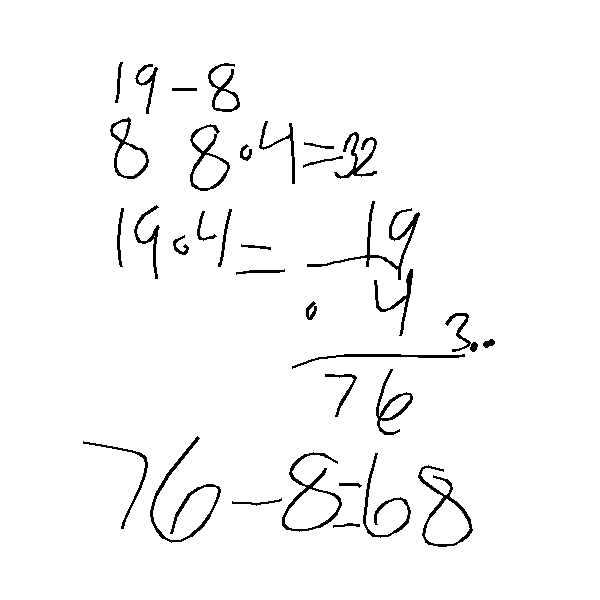 19-8
8 8.4=32
19.4= 19
. 4
3..
76
76-8=68